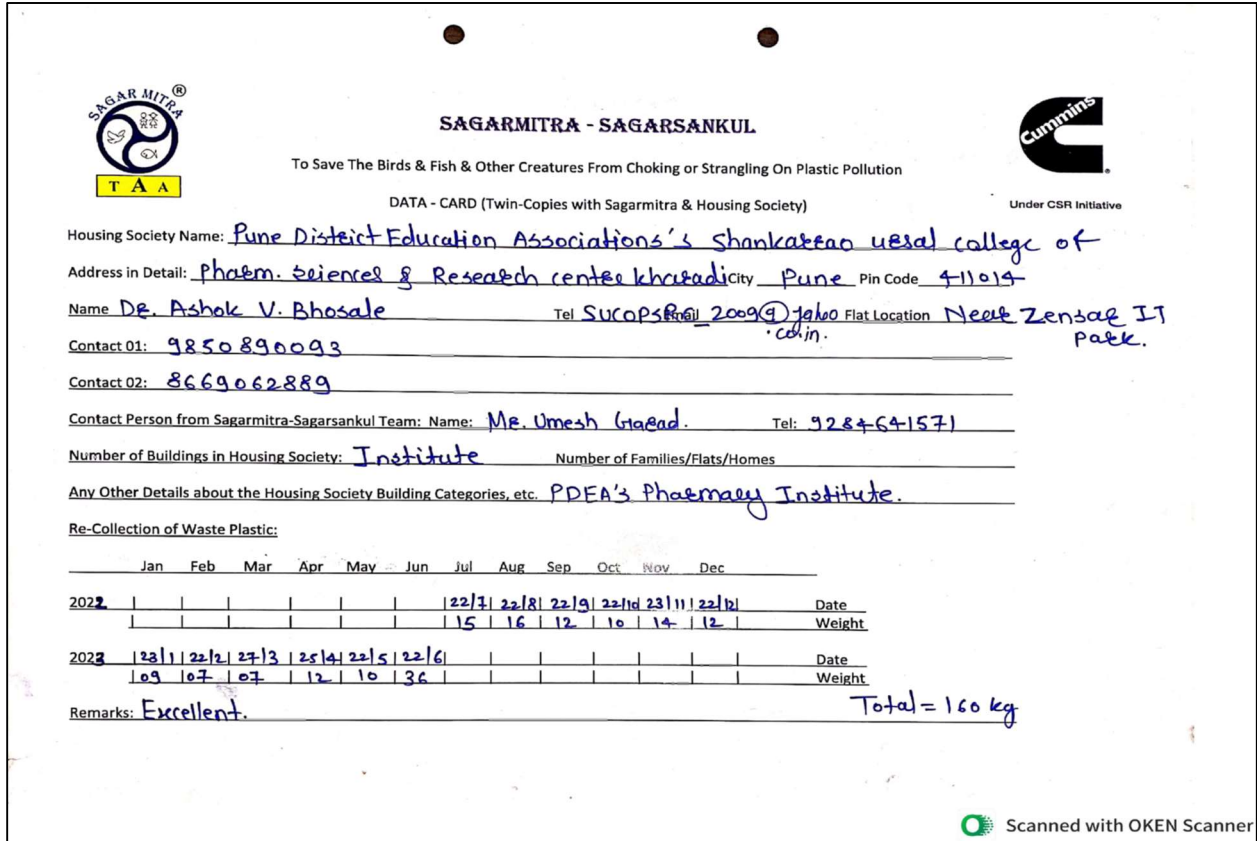 SAGAR MITRA ®
T A A
SAGARMITRA - SAGARSANKUL
Cummins
To Save The Birds & Fish & Other Creatures From Choking or Strangling On Plastic Pollution
DATA - CARD (Twin-Copies with Sagarmitra & Housing Society)
Under CSR Initiative
Housing Society Name: Pune District Education Associations's Shankarrao ursal college of
Address in Detail: Pharm. Sciences & Research centre kharadi City Pune Pin Code 411014
Name Dr. Ashok V. Bhosale Tel Email _2009@yahoo Flat Location Near Zensar IT
.co.in. Park.
Contact 01: 9850890093
Contact 02: 8669062889
Contact Person from Sagarmitra-Sagarsankul Team: Name: Mr. Umesh Garad. Tel: 9284641571
Number of Buildings in Housing Society: Institute Number of Families/Flats/Homes
Any Other Details about the Housing Society Building Categories, etc. PDEA's Pharmacy Institute.
Re-Collection of Waste Plastic:
Jan Feb Mar Apr May Jun Jul Aug Sep Oct Nov Dec
2022 22/7 22/8 22/9 22/10 23/11 22/12 Date
15 16 12 10 14 12 Weight
2023 23/1 22/2 27/3 25/4 22/5 22/6 Date
09 07 07 12 10 36 Weight
Remarks: Excellent. Total = 160 kg
Scanned with OKEN Scanner